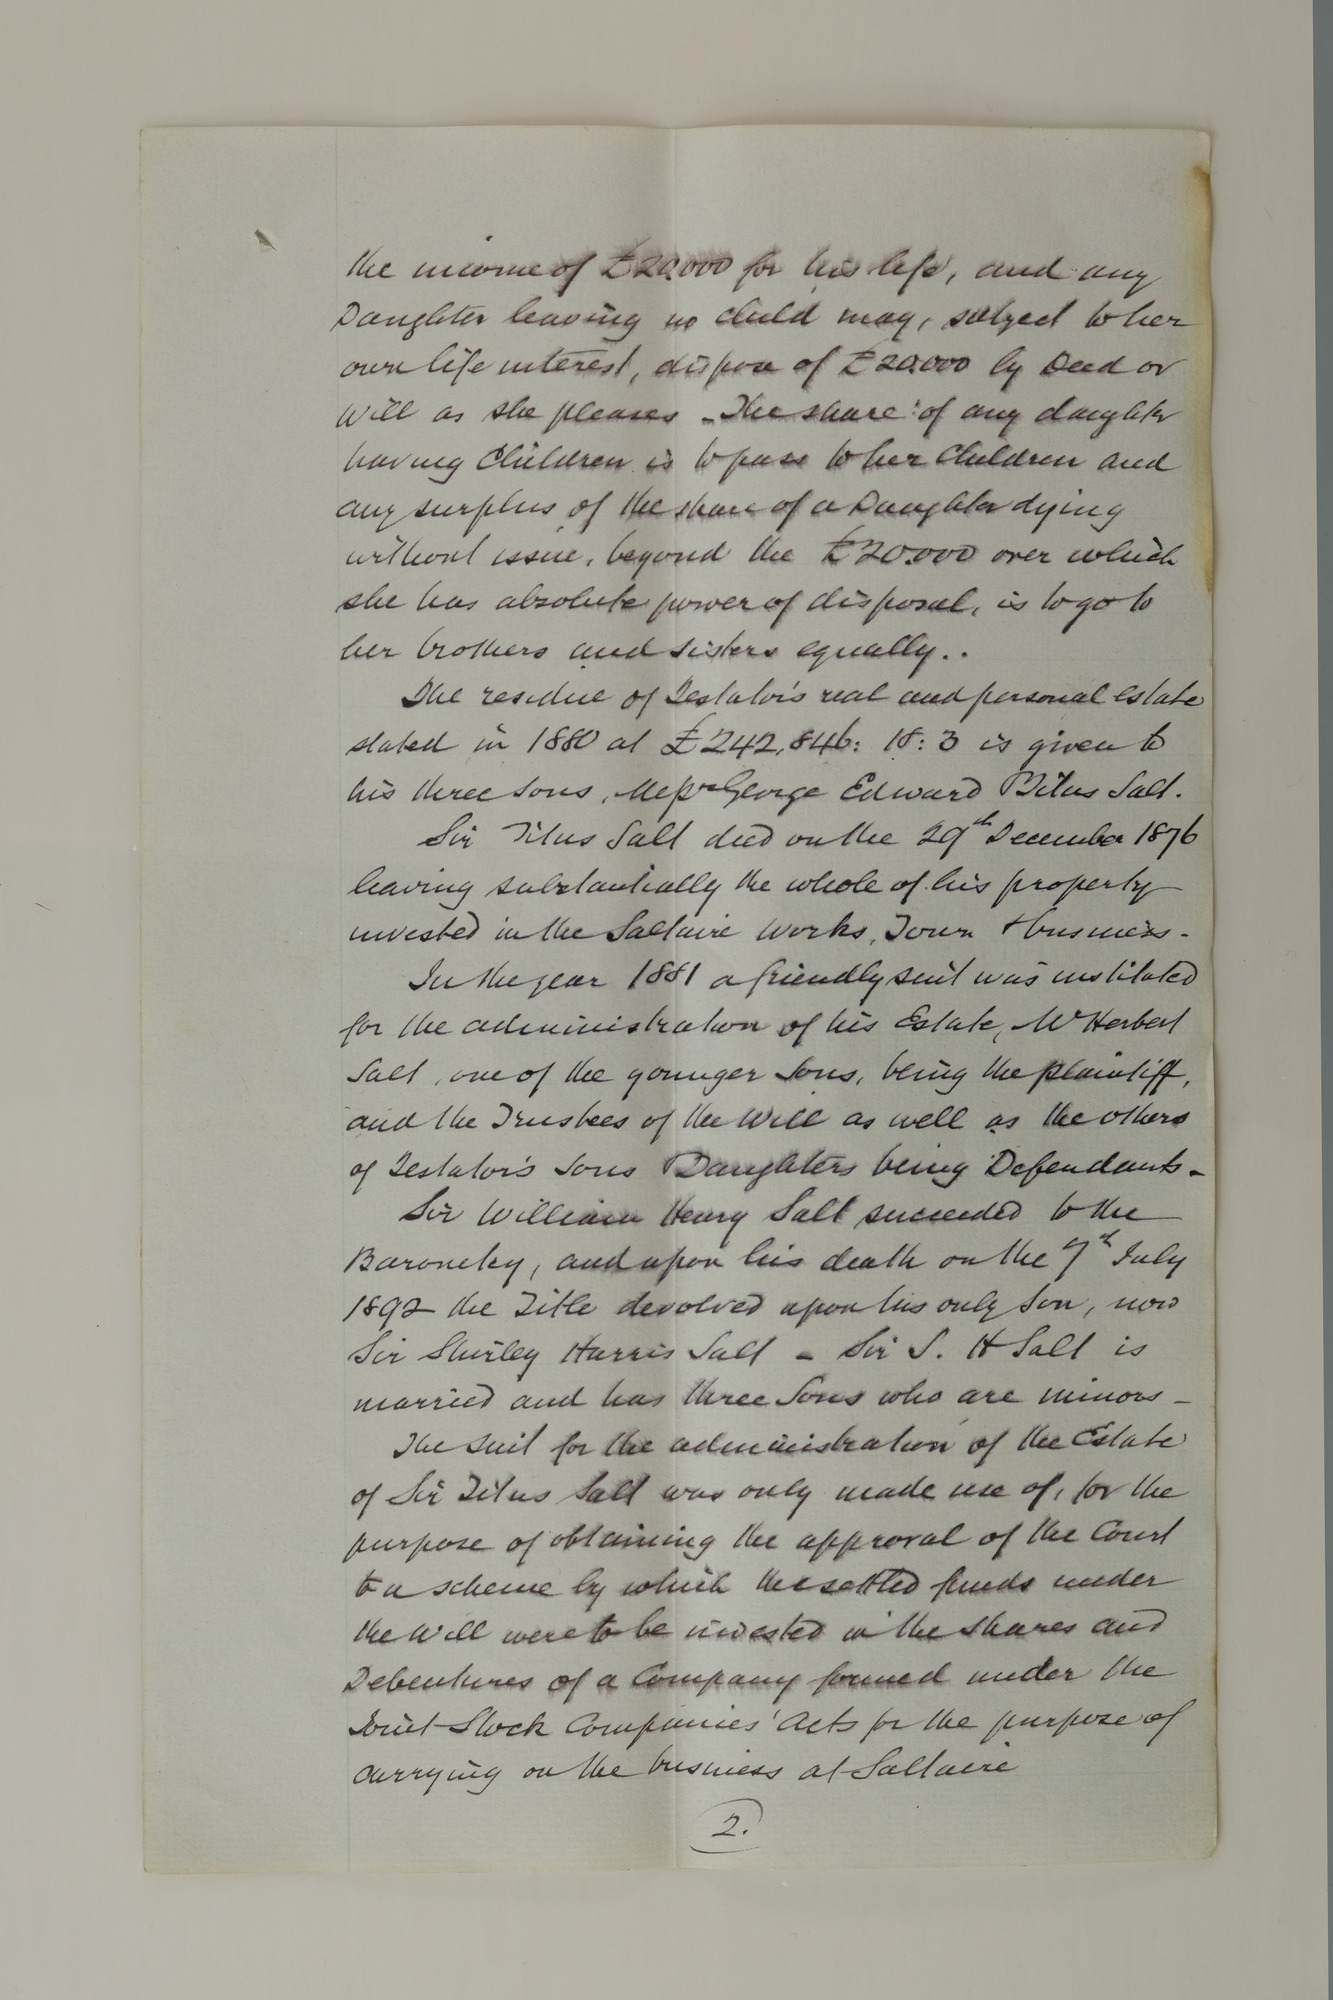 the income of £20,000 for his life, and any
Daughter leaving no child may, subject to her
own life interest, dispose of £20,000 by Deed or
Will as she pleases - The share of any daughter
having Children is to pass to her Children and
any surplus of the share of a Daughter dying
without issue, beyond the £20,000 over which
she has absolute power of disposal, is to go to
her brothers and sisters equally..
The residue of Testator's real and personal Estate
stated in 1880 at £242,846: 18: 3 is given to
his three sons, Messrs George Edward & Titus Salt.
Sir Titus Salt died on the 29th December 1876
leaving substantially the whole of his property
invested in the Saltaire Works, Town & business -
In the year 1881 a friendly suit was instituted
for the administration of his Estate, Mr Herbert
Salt, one of the younger Sons, being the plaintiff,
and the Trustees of the Will as well as the others
of Testator's Sons & Daughters being Defendants -
Sir William Henry Salt succeeded to the
Baronetcy, and upon his death on the 7th July
1892 the Title devolved upon his only Son, now
Sir Shirley Harris Salt - Sir S. H Salt is
married and has three Sons who are minors -
The suit for the administration of the Estate
of Sir Titus Salt was only made use of, for the
purpose of obtaining the approval of the Court
to a scheme by which the settled funds under
the Will were to be invested in the Shares and
Debentures of a Company formed under the
Joint Stock Companies' Acts for the purpose of
carrying on the business at Saltaire
2.